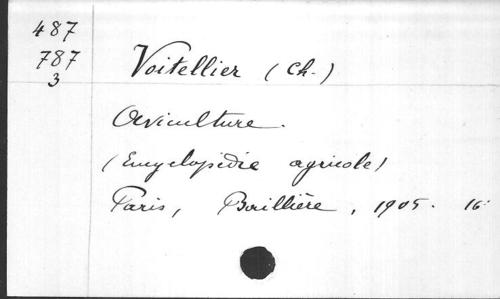 487
787
3
Voitellier (Ch.)
Aviculture.
(Encyclopédie agricole)
Paris, Baillière, 1905. 16º